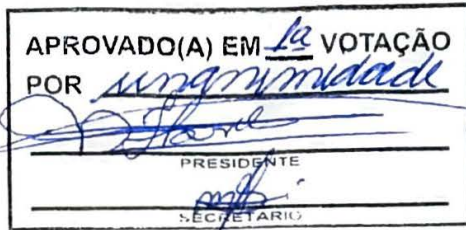 APROVADO(A) EM 1ª VOTAÇÃO
POR unanimidade
PRESIDENTE
SECRETARIO